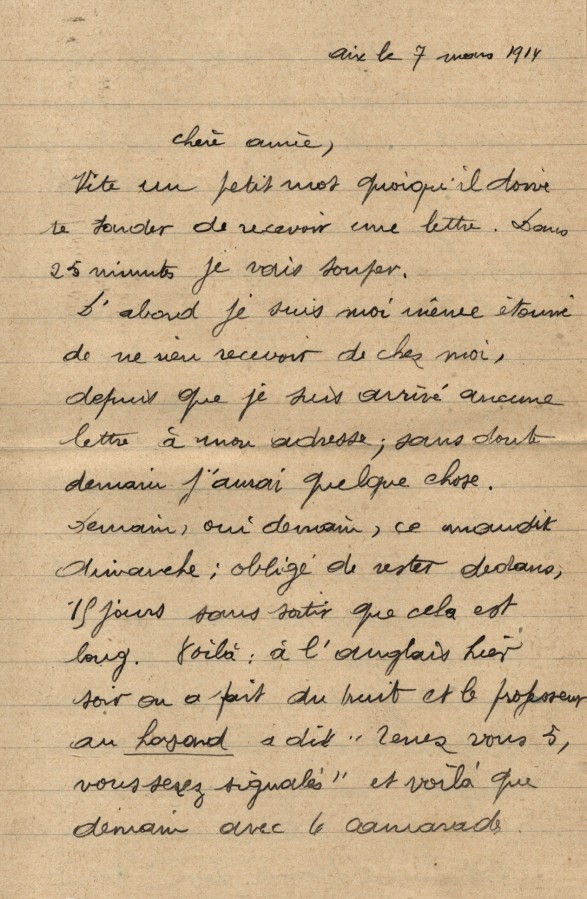 Aix le 7 mars 1914
chère amie,
Vite un petit mot quoiqu'il doive
te tarder de recevoir une lettre. Dans
25 minutes je vais souper.
D'abord je suis moi même étonné
de ne rien recevoir de chez moi,
depuis que je suis arrivé aucune
lettre à mon adresse; sans doute
demain j'aurai quelque chose.
Demain, oui demain, ce maudit
dimanche; obligé de rester dedans,
15 jours sans sortir que cela est
long. Voilà: à l'anglais hier
soir on a fait du bruit et le professeur
au hasard a dit "Tenez vous 5,
vous serez signalés" et voilà que
demain avec 4 camarades